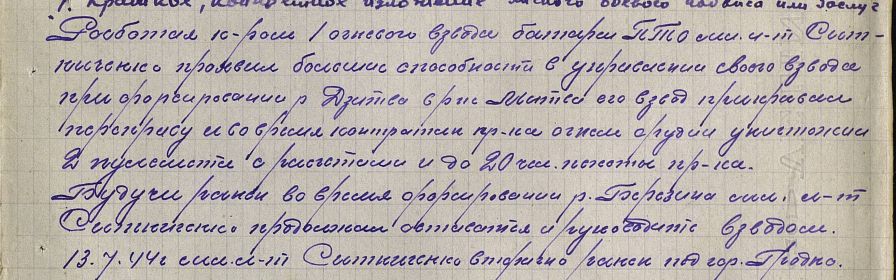 1. Краткое, конкретное изложение личного боевого подвига или заслуг
Работая к-ром 1 огневого взвода батареи ПТО мл. л-т Сит-
ниченко проявил большие способности в управлении своего взвода
при форсировании р Дзитва в р-не Мытва его взвод прикрывал
переправу и во время контратак пр-ка огнем орудий уничтожил
2 пулемета с расчетами и до 20 чел. пехоты пр-ка.
Будучи ранен во время форсирования р. Березина мл. л-т
Ситниченко продолжал оставатся и руководить взводом.
13.7.44г мл. л-т Ситниченко вторично ранен под гор. Гродно.